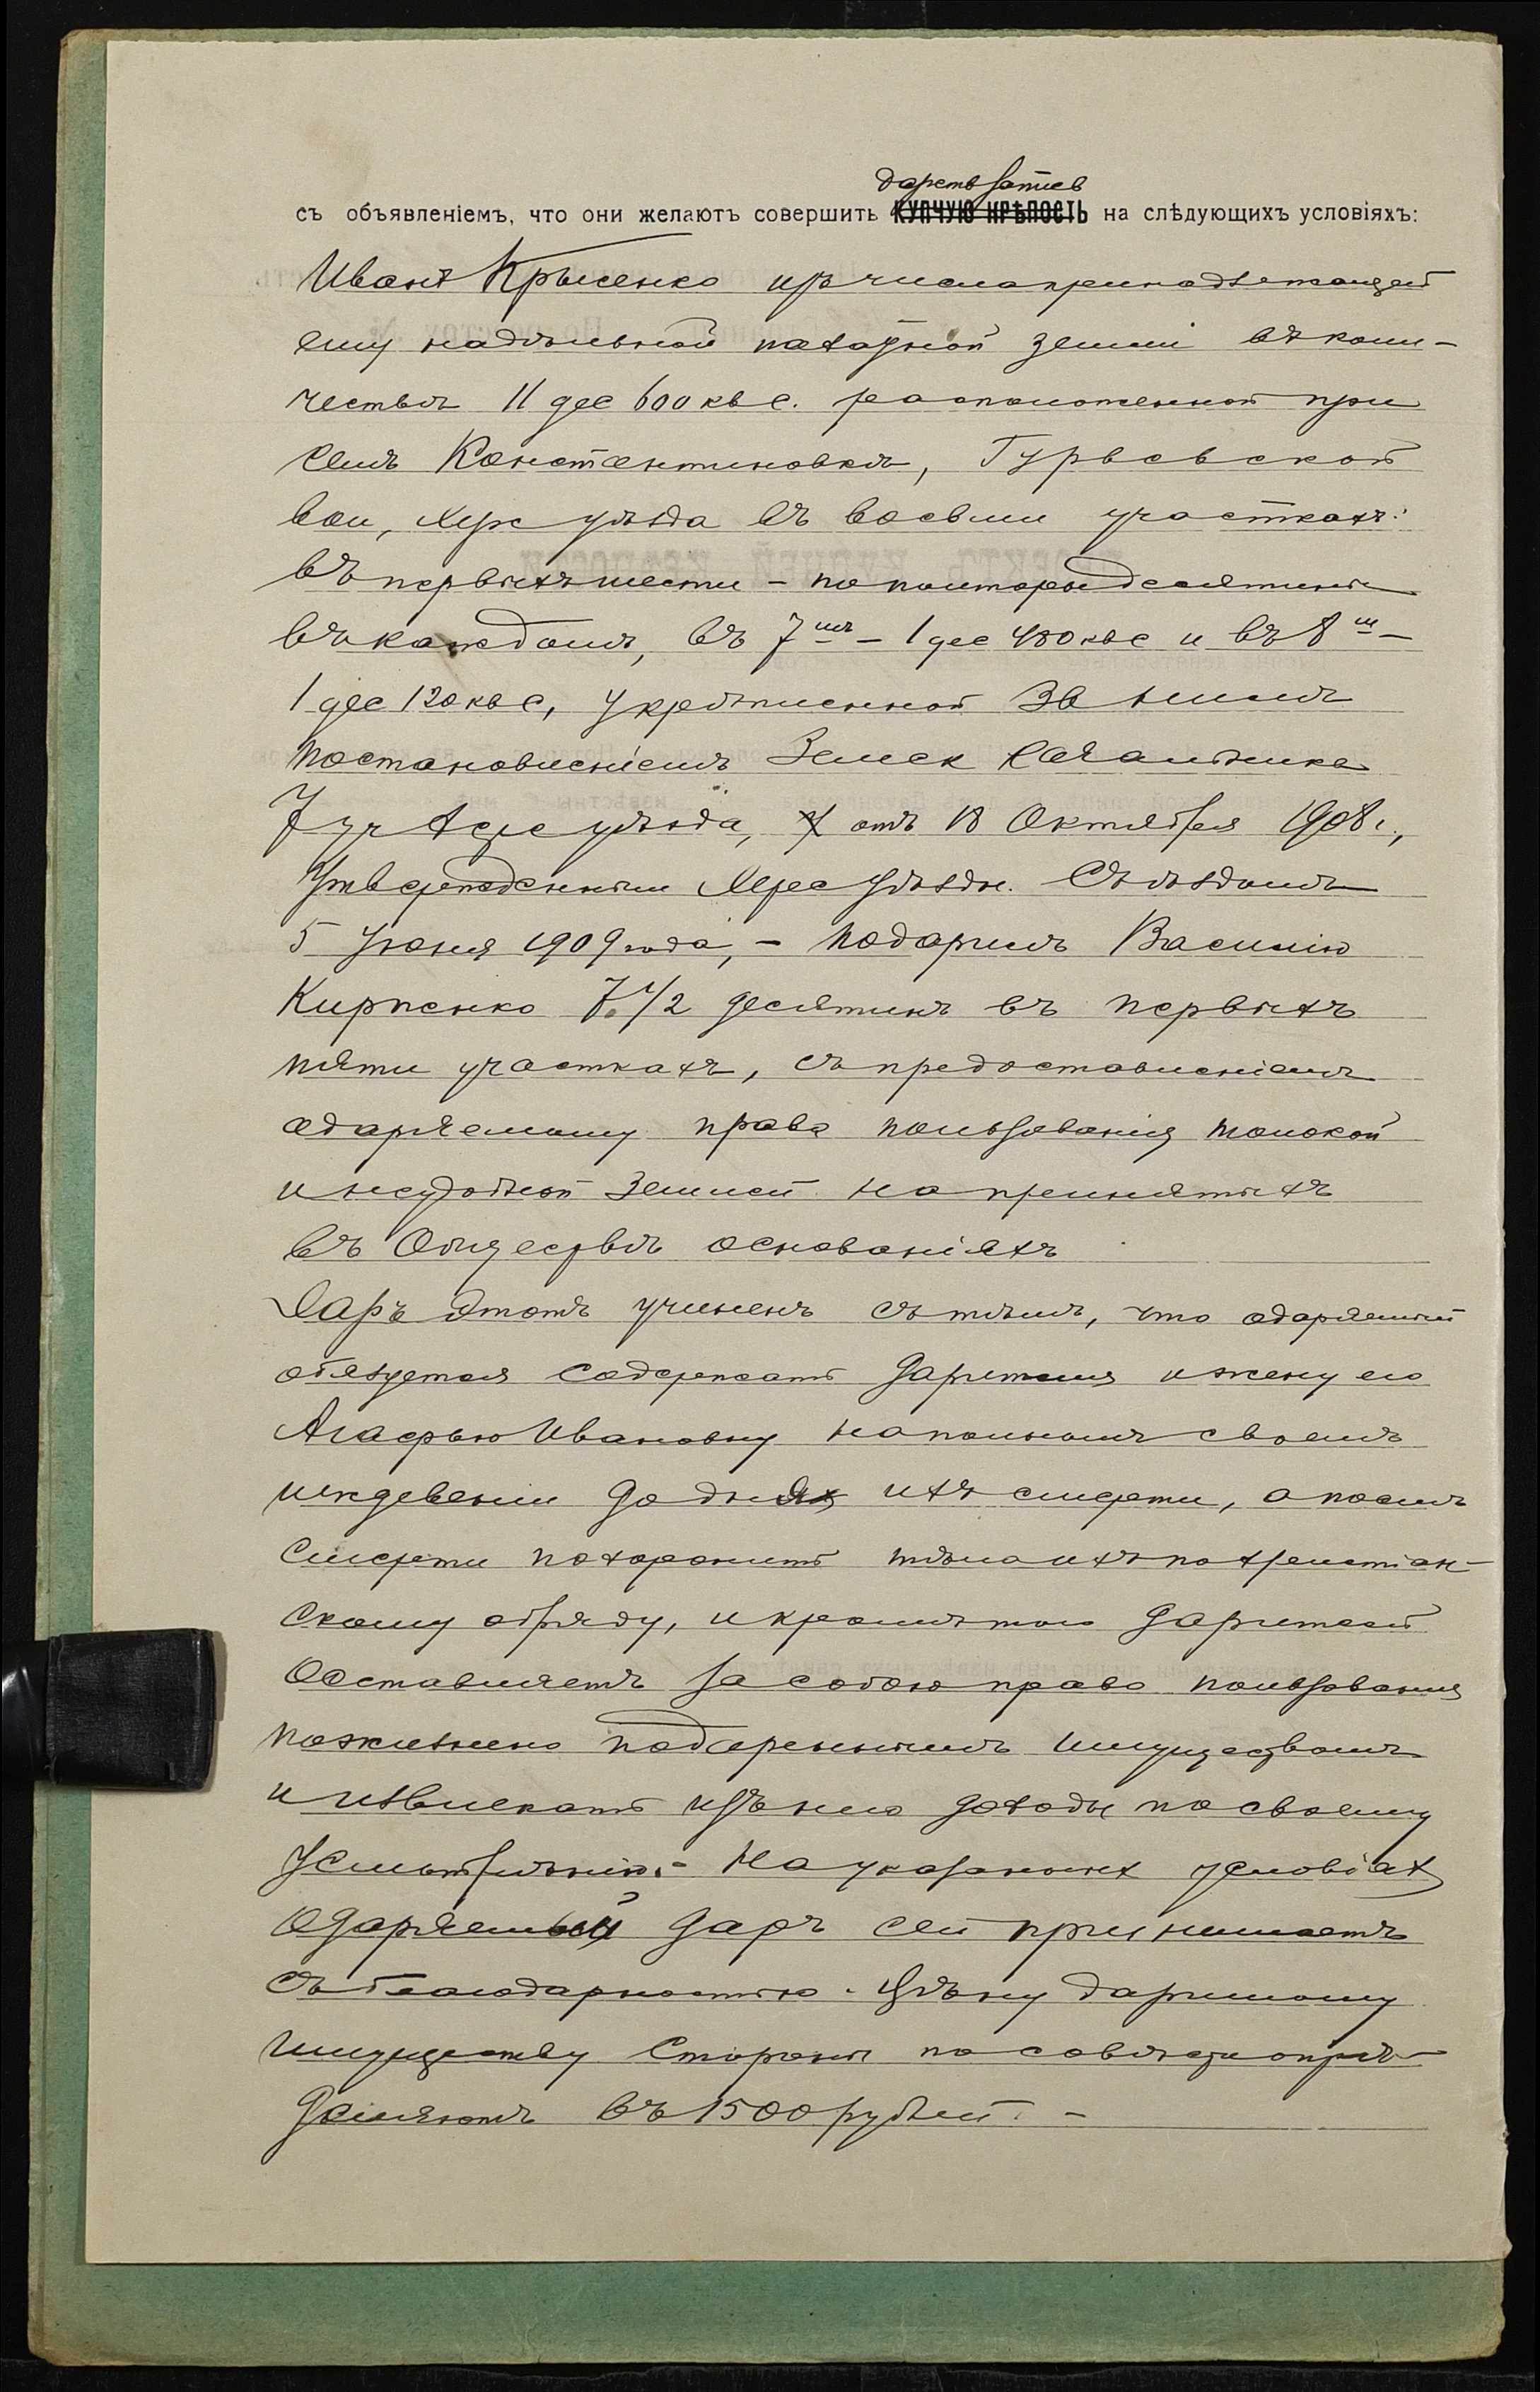 дарств запись
съ объявленіемъ, что они желаютъ совершить КУПЧУЮ КРѢПОСТЬ на слѣдующихъ условіяхъ:
Иванъ Крысенко изъ числа принадлежащей
ему надѣльной пахатной земли въ коли-
чествѣ 11 дес 600 кв с. расположенной при
селѣ Константиновкѣ, Гурьевской
вол, Херс уѣзда въ восьми участкахъ:
въ первыхъ шести – по полторы десятины
въ каждомъ, въ 7мъ – 1 дес 480 кв с и въ 8м –
1 дес 120 кв с, укрѣпленной за нимъ
постановленіемъ Земск Начальника
7 уч Херс уѣзда, отъ 18 Октября 1908 г.,
Утвержденнымъ Херс Уѣздн. Съѣздомъ
5 Іюня 1909 года, – подарилъ Василію
Кирпенко 7 1/2 десятинъ въ первыхъ
пяти участкахъ, съ предоставленіемъ
одаряемому права пользованія толокой
и неудобной землей на принятыхъ
въ Обществѣ основаніяхъ
Даръ этотъ учиненъ съ тѣмъ, что одаряемый
обязуется содержать дарителя и жену его
Агафью Ивановну на полномъ своемъ
иждевеніи до дня ихъ смерти, а послѣ
смерти похоронить тѣла ихъ по христіан-
скому обряду, и кромѣ того даритель
оставляетъ за собою право пользованія
пожизнено подареннымъ имуществомъ
и извлекать изъ него доходы по своему
Усмотрѣнію. – На указаныхъ условіях
одаряемый даръ сей принимаетъ
съ благодарностью. Цѣну даримому
имуществу стороны по совѣсти опре-
дѣляютъ въ 1500 рублей. –